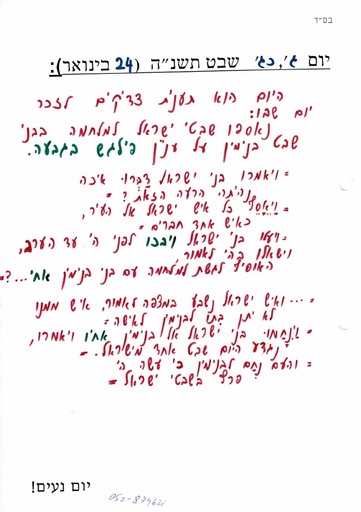 בס״ד
יום ג', כג' שבט תשנ״ה (24 בינואר):
היום הוא תענית צדיקים לזכר
יום שבו:
נאספו שבטי ישראל למלחמה בבני
שבט בנימין על ענין פילגש בגבעה.
= ויאמרו בני ישראל דברו איכה
נהיתה הרעה הזאת? =
= ויאסף כל איש ישראל אל העיר,
כאיש אחד חברים =
= ויעלו בני ישראל ויבכו לפני ה' עד הערב,
וישאלו בה' לאמור
האוסיף לגשת למלחמה עם בני בנימין אחי...? =
= ... ואיש ישראל נשבע במצפה לאמור, איש ממנו
לא יתן בתו לבנימין לאישה =
= וינחמו בני ישראל אל בנימין אחיו ויאמרו,
נגדע היום שבט אחד מישראל. =
= והעם נחם לבנימין כי עשה ה'
פרץ בשבטי ישראל =
יום נעים!